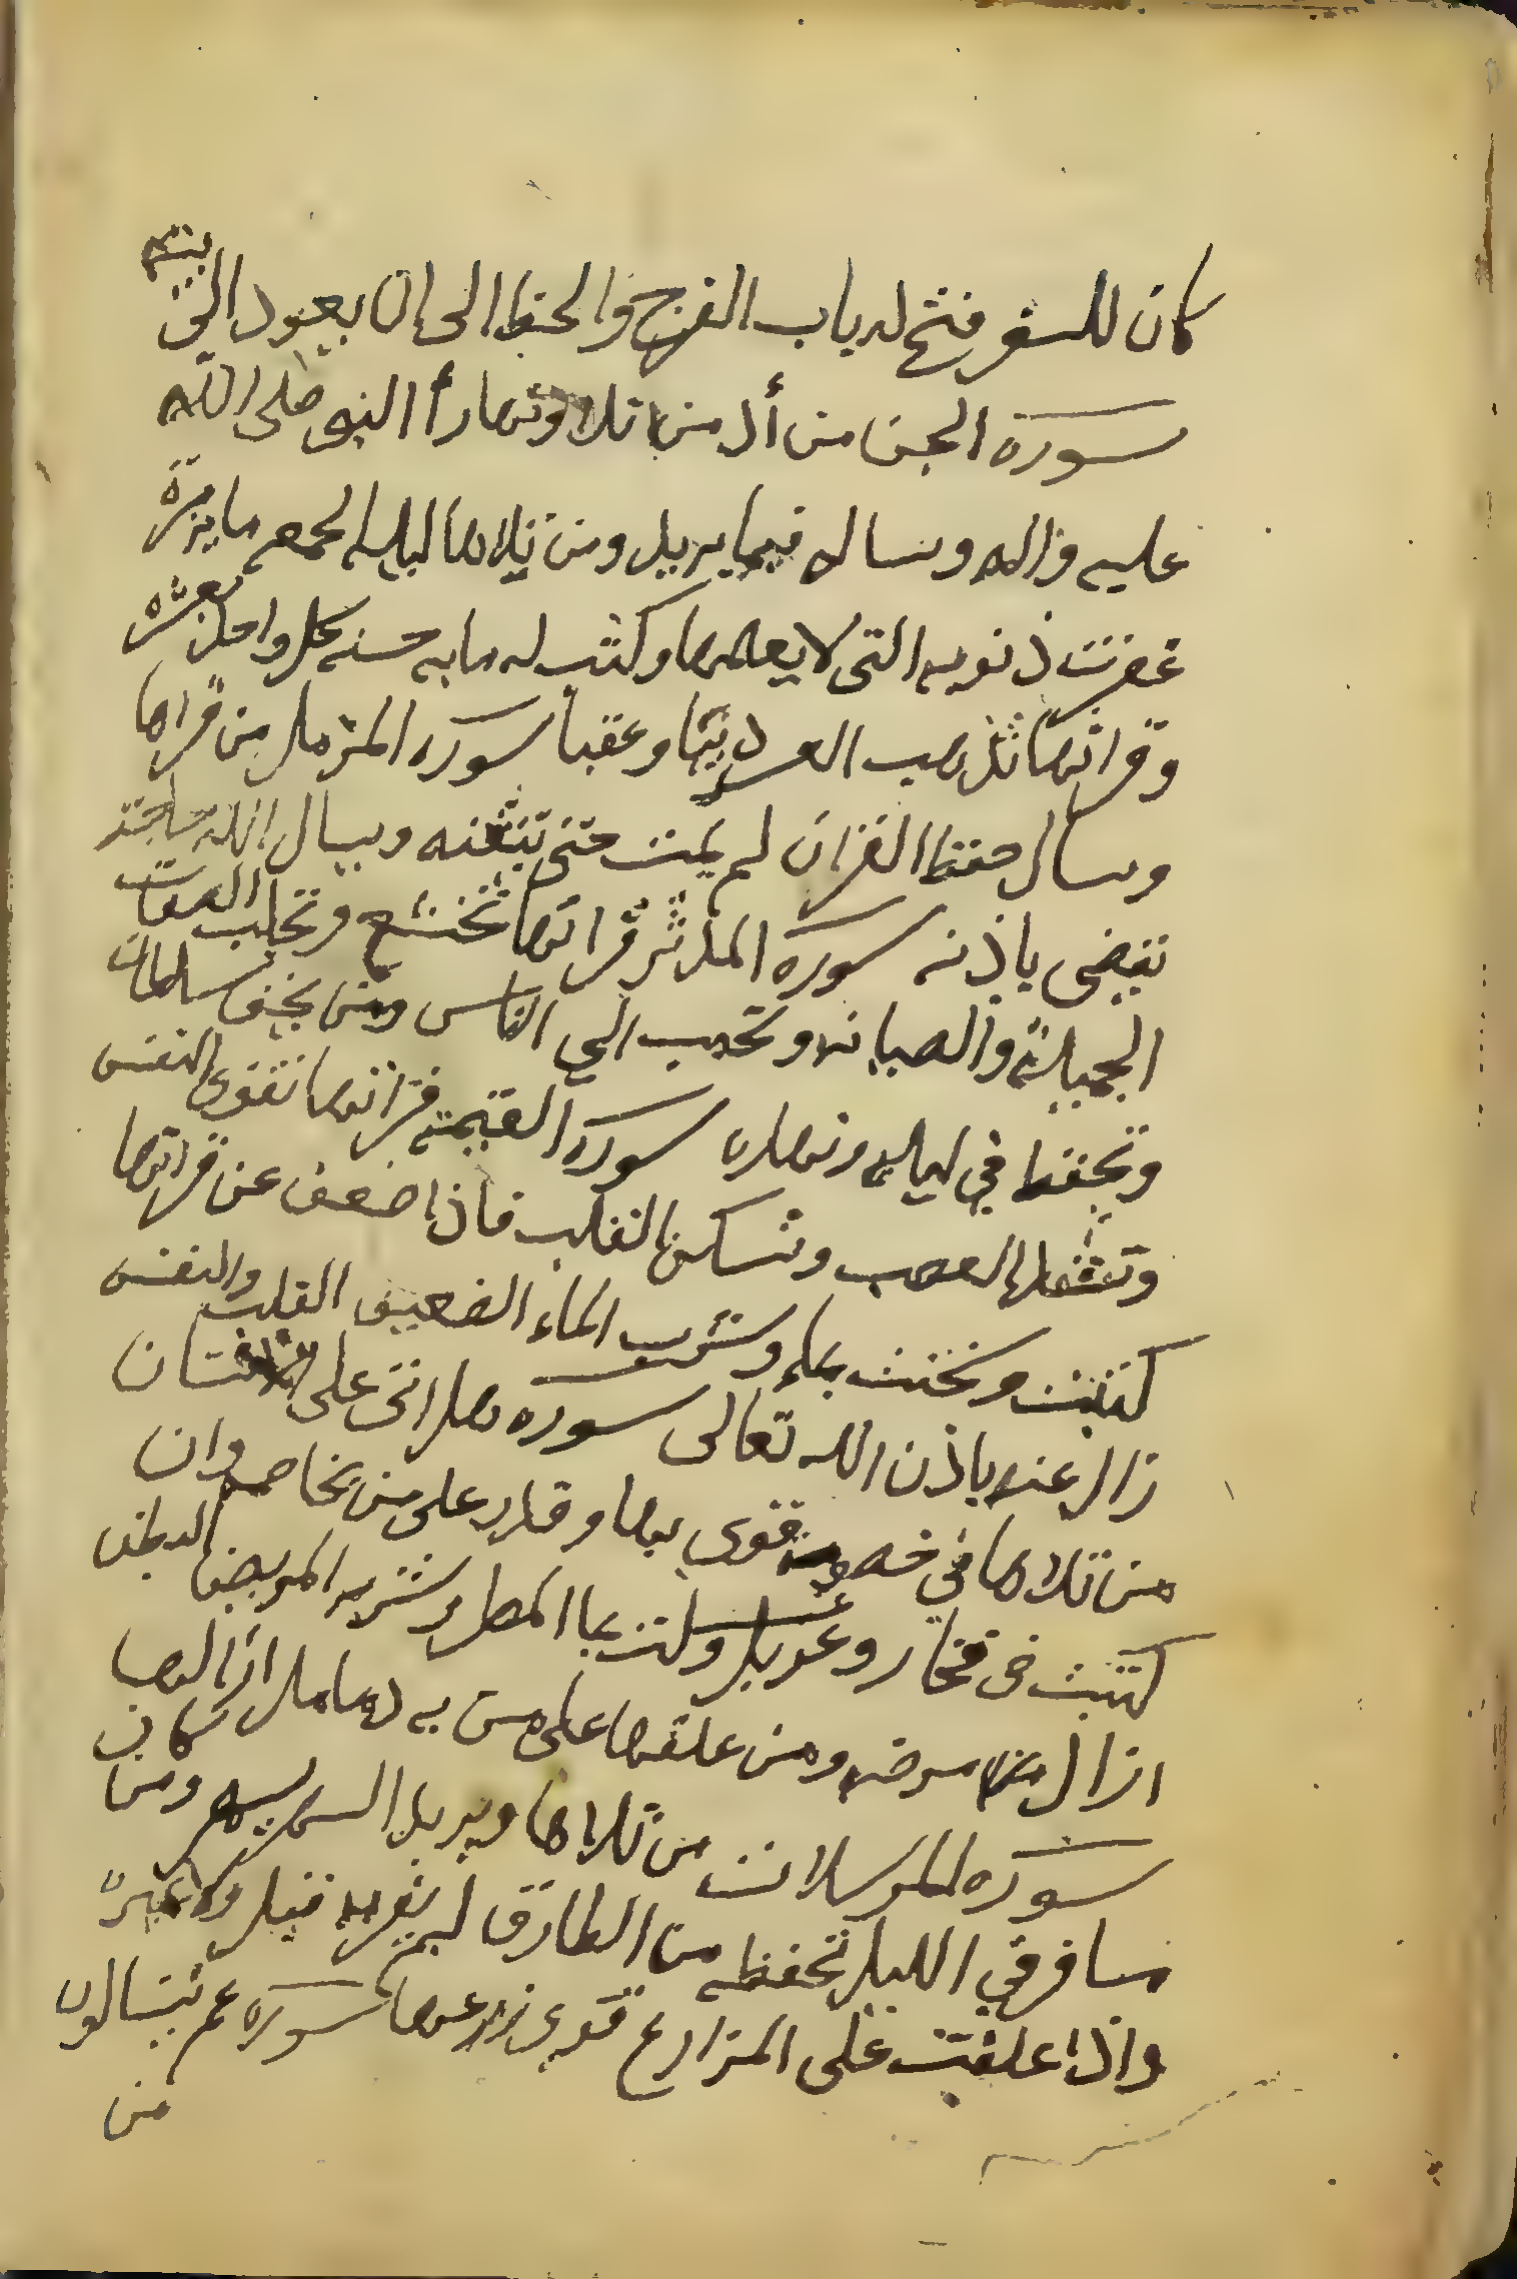 كان للسفر فتح له باب الفرج والحفظ الى ان يعود الى بيته
سورة الجن من أدمن تلاوتها رأ النبي صلى الله
عليه واله وساله فيما يريد ومن تلاها ليلة الجمعه مايه مرة
غفرت ذنوبه التي لا يعلمها وكتب له مايه حسنه كل واحد بعشره
وقراتها تذهب العسر دنيا وعقبا سورة المزمل من قراها
وسال حفظ القران لم يمت حتى يتقنه ويسال الله حاجته
تقضى باذنه سورة المدثر قراتها تخشع وتجلب الصفات
الجميلة والصيانه وتحبب الى الناس ومن يخف سلطان
وتحفظ في ليله ونهاره سورة القيمة قراتها تقوى النفس
وتشد العصب وتسكن القلب فاذا ضعف عن قراتها
كتبت ومحيت بماء وشرب الماء الضعيف القلب والنفس
زال عنه باذن الله تعالى سورة هل اتى على الانسان
من تلاها في قوى بها وقدر على من يخاصمه وان
كتبت في فخار وغسلت بما المطر وشربه المريض البطن
ازال عنه مرضه ومن علقها على من به دمامل ازالها
سورة المرسلات من تلاها ويريد السهر يسهر ومن كان
مسافر في الليل تحفظه من الطارق لم يقربه فيل ولا غيره
واذا علقت على المزارع قوى زرعها سورة عم يتسالون
من